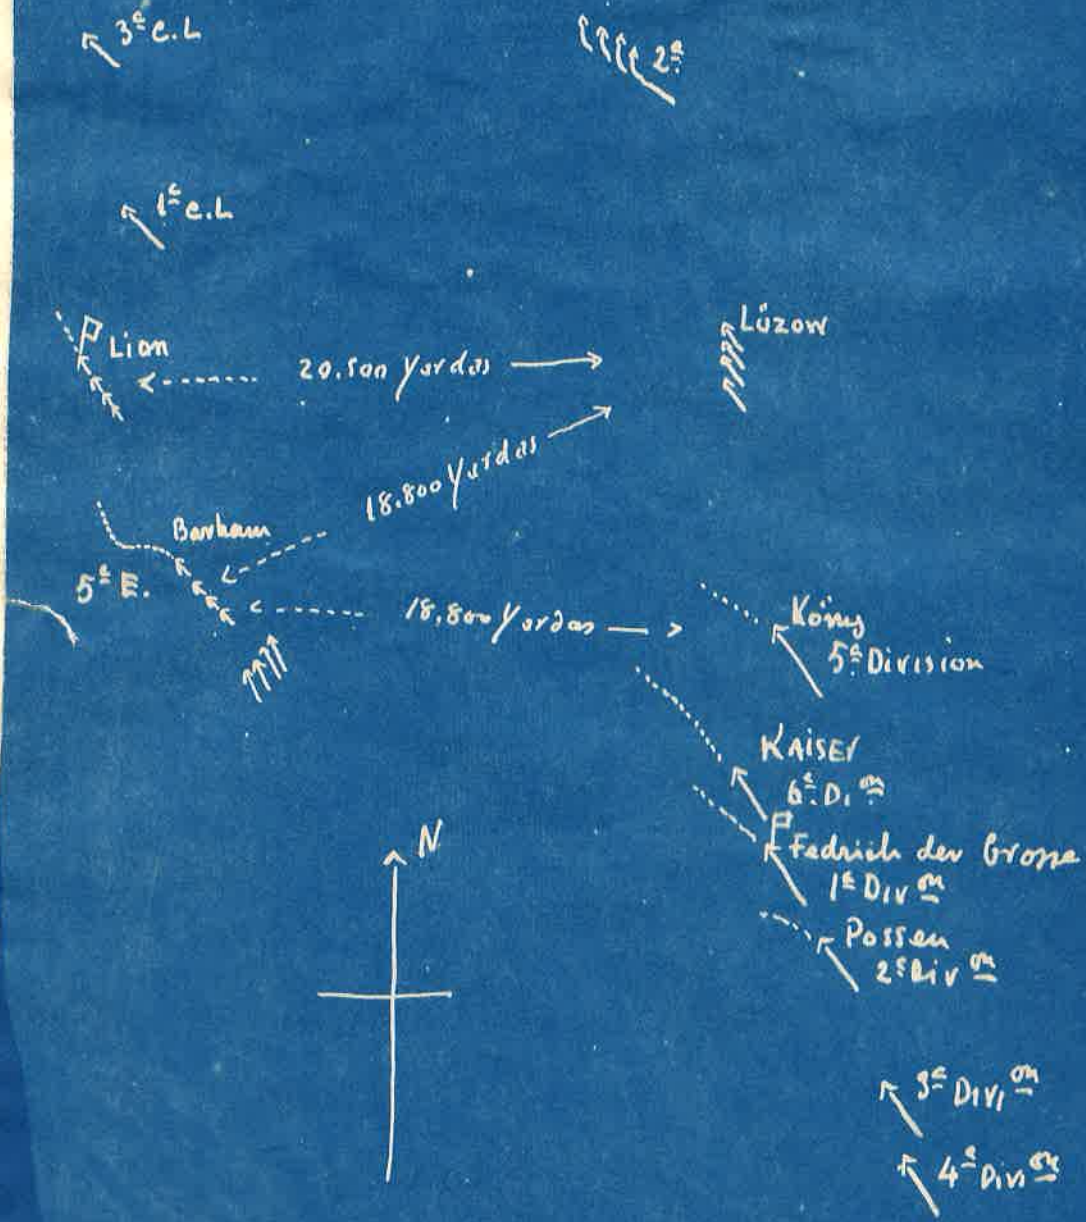 3ª C.L
2ª
1ª C.L
Lion
20.500 Yardas
Lüzow
18.800 Yardas
Barham
5ª E.
18,800 Yardas
König
5ª Division
KAiSEr
6ª Di on
Fedrich der Grosse
1ª Div on
Possen
2ª Div on
N
3ª Divi on
4ª Divi on